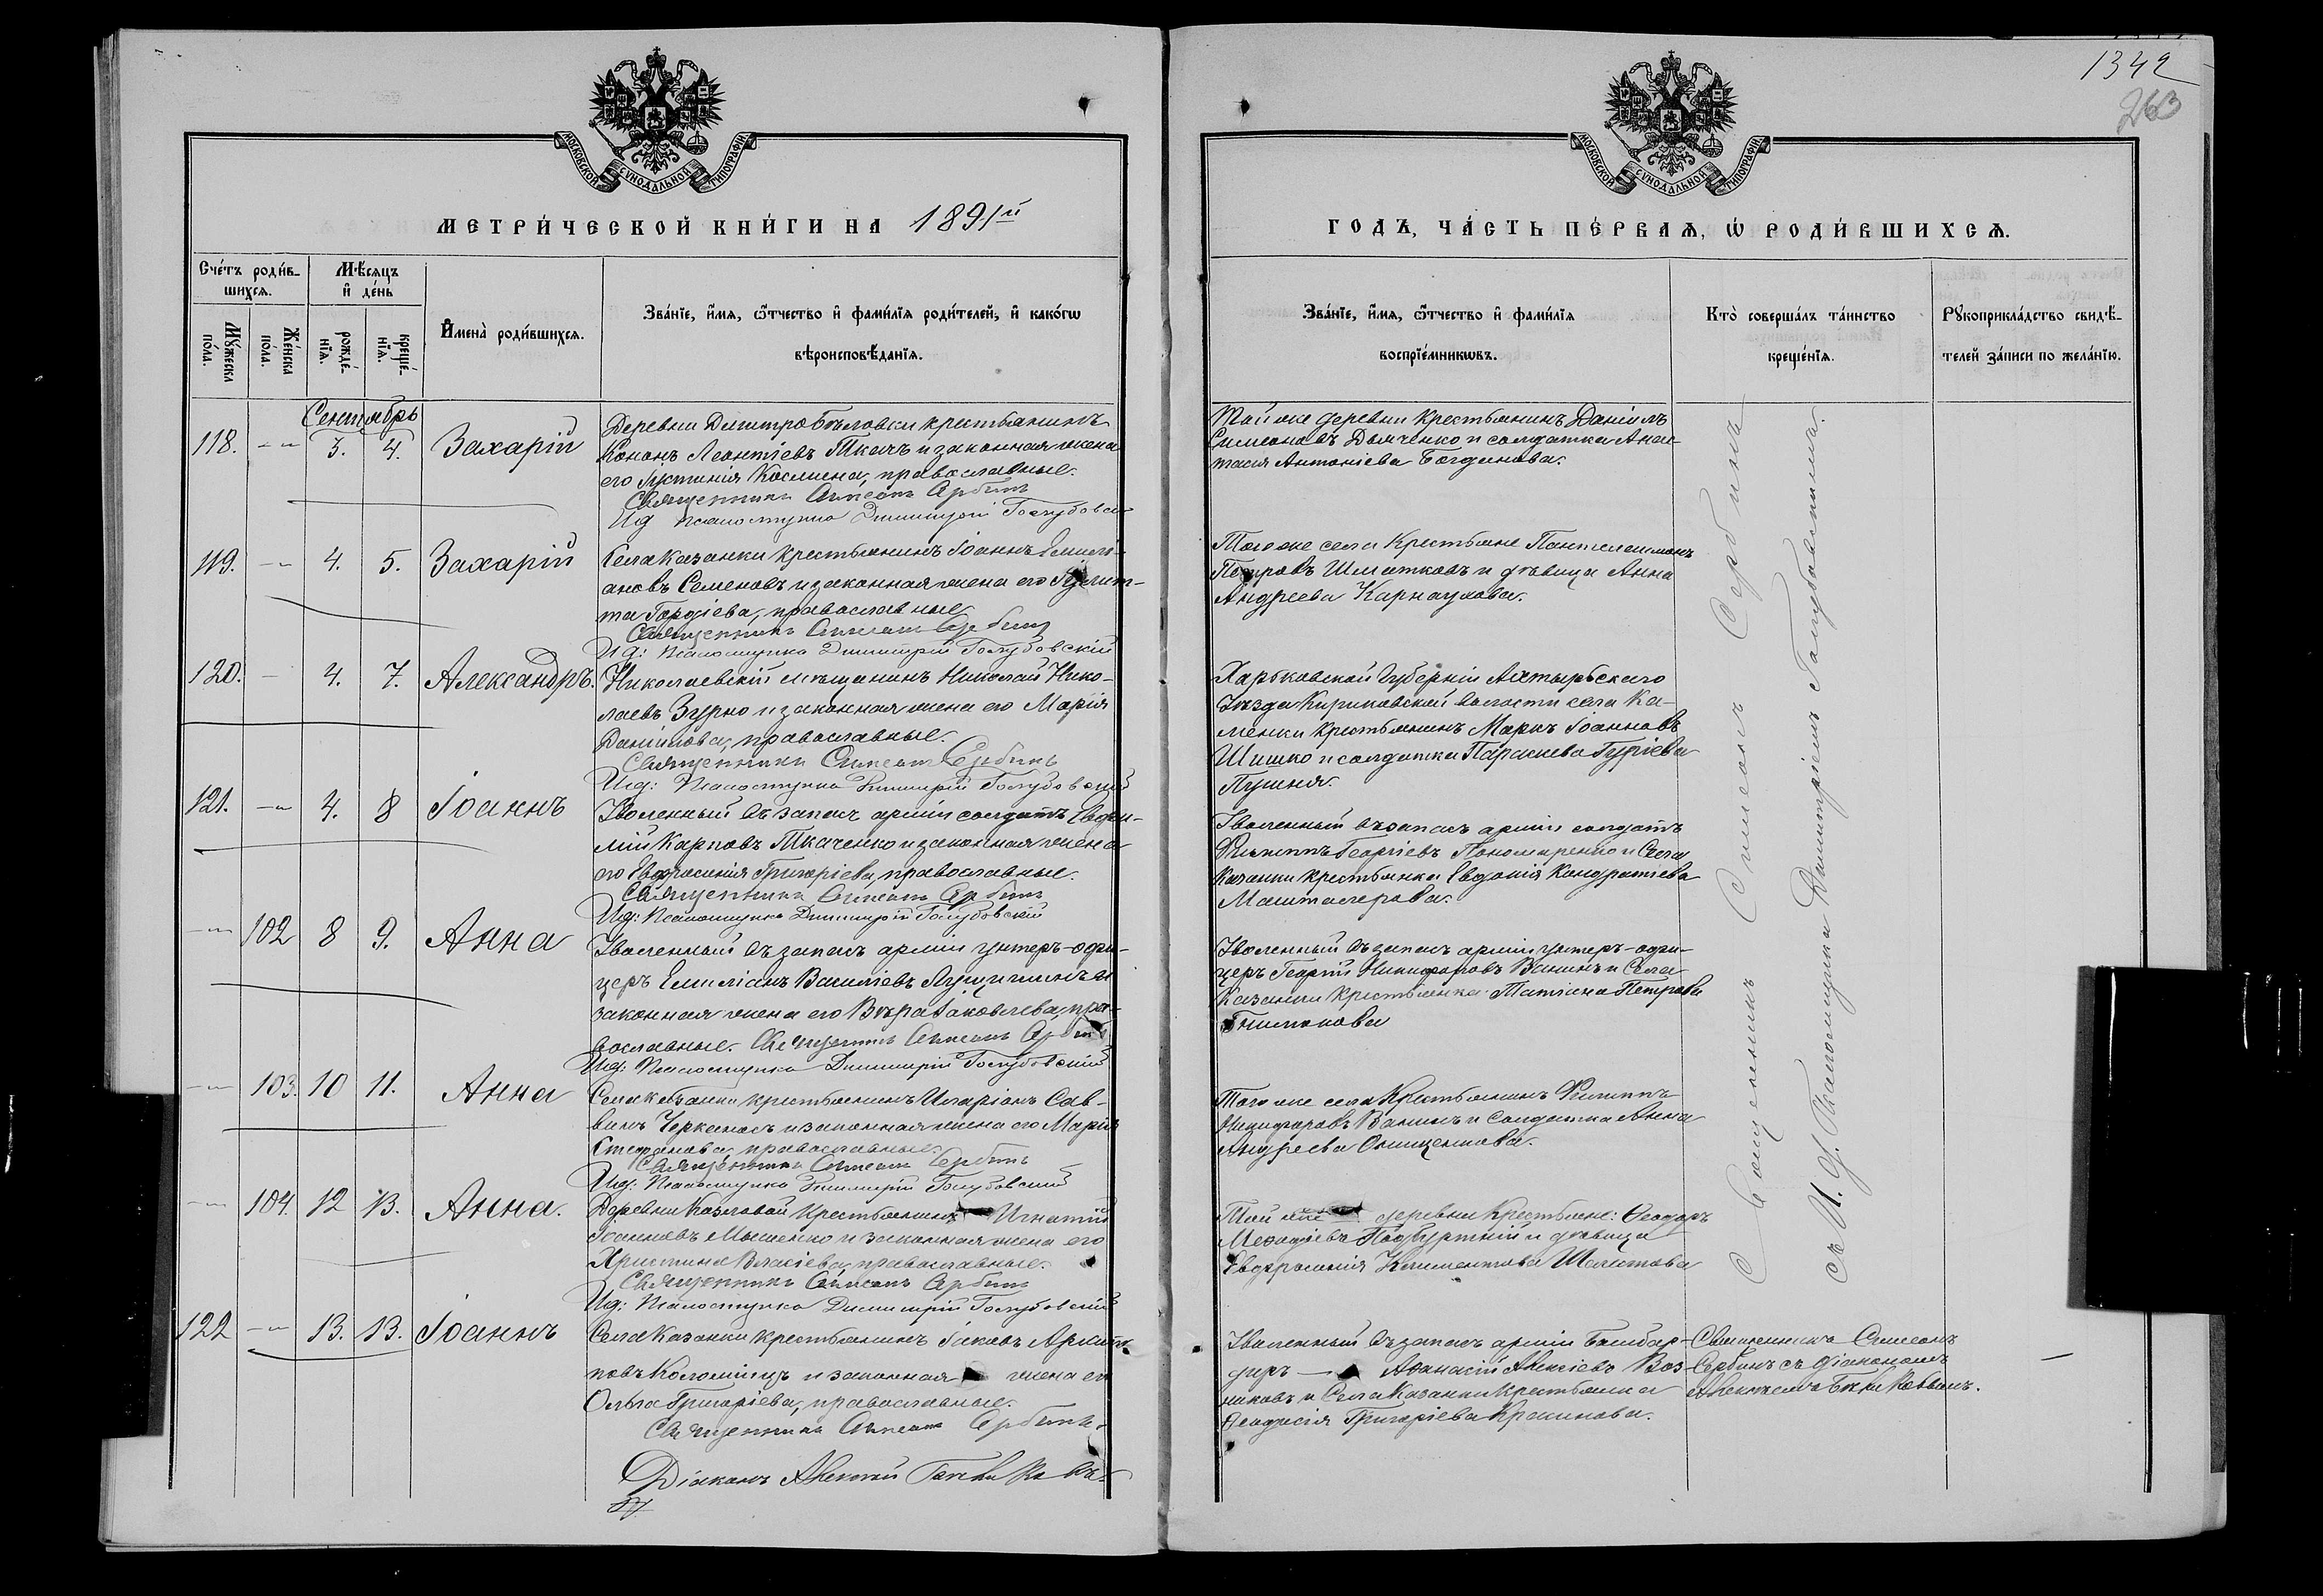 1342
263
МОСКОВСКОЙ СѴНОДАЛЬНОЙ ТИПОГРАФІИ
МЕТРИ́ЧЕСКОЙ КНИ́ГИ НА 1891й
Сче́тъ роди́в-
шихсѧ.
Мѣ́сѧцъ
и҆ де́нь
Мꙋ́жеска
по́ла.
Же́нска
по́ла.
рожде́-
нїѧ.
креще́-
нїѧ.
И҆мена̀ роди́вшихсѧ.
Зва́нїе, и҆́мѧ, ѻ҆́тчество и҆ фами́лїѧ роди́телей, и҆ како́гѡ
вѣроисповѣ́данїѧ.
Сентябрь
118. -"- 3. 4. Захарій
Деревни Дмитробѣловки крестьянинъ
Кононъ Леонтіевъ Ткачъ и законная жена
его Іустинія Космина, православные.
Священникъ Симеонъ Сербинъ
Ид Псаломщика Димитрій Голубовскій
119. -"- 4. 5. Захарій
Села Казанки крестьянинъ Іоаннъ Емилі-
ановъ Семеновъ и законная жена его Іулит-
та Гордіева, православные
Священникъ Симеонъ Сербинъ
Ид: Псаломщика Димитрій Голубовскій
120. - 4. 7. Александръ.
Николаевскій мѣщанинъ Николай Нико-
лаевъ Зурно и законная жена его Марія
Даніилова, православные.
Священникъ Симеонъ Сербинъ
Ид: Псаломщика Димитрій Голубовскій
121. -"- 4. 8 Іоаннъ
Уволенный въ запасъ арміи солдатъ Евфи-
мій Карповъ Ткаченко и законная жена
его Евфросинія Григоріева, православные.
Священникъ Симеонъ Сербинъ
Ид: Псаломщика Димитрій Голубовскій
-"- 102 8 9. Анна
Уволенный въ запасъ арміи унтеръ-офи-
церъ Емиліанъ Василіевъ и
законная жена его Вѣра Іаковлева, пра-
вославные. Священникъ Симеонъ Сербинъ
Ид: Псаломщика Димитрій Голубовскій
-"- 103. 10 11. Анна
Села Казанки крестьянинъ Иларіонъ Сав-
винъ Черкасъ и законная жена его Марія
Стефанова, православные.
Священникъ Симеонъ Сербинъ
Ид: Псаломщика Димитрій Голубовскій
-"- 104. 12 13. Анна.
Деревни Казловой крестьянинъ Игнатій
Іоанновъ Мысенко и законная жена его
Христина Власіева, православные.
Священникъ Симеонъ Сербинъ
Ид: Псаломщика Димитрій Голубовскій
122 -"- 13. 13. Іоаннъ
Села Казанки крестьянинъ Іаковъ
повъ Коломіицъ и законная жена его
Ольга Григоріева, православные.
Священникъ Симеонъ Сербинъ.
Діаконъ Алексѣй
МОСКОВСКОЙ СѴНОДАЛЬНОЙ ТИПОГРАФІИ
ГОДЪ, ЧА́СТЬ ПЕ́РВАѦ, Ѡ҆ РОДИ́ВШИХСѦ.
Зва́нїе, и҆́мѧ, ѻ҆́тчество и҆ фами́лїѧ
воспрїе́мникѡвъ.
Кто̀ соверша́лъ та́инство
креще́нїѧ.
Рꙋкоприкла́дство свидѣ́-
телей за́писи по жела́нїю.
Той же деревни крестьянинъ Даніилъ
Симеоновъ Дьяченко и солдатка Анас-
тасія Антоніева Богданова.
Того же села крестьяне Пантелеимонъ
Петровъ Шматковъ и дѣвица Анна
Андреева Карнаухова.
Харьковской губерніи Ахтырьскаго
Уѣзда Кириковской волости села Ка-
менки крестьянинъ Маркъ Іоанновъ
Шишко и солдатка Параскева Гуріева
Пушня.
Уволенный въ запасъ арміи солдатъ
Филиппъ Георгіевъ Пономаренко и Села
Казанки крестьянка Евдокія Кондратіева
Машталерова.
Уволенный въ запасъ арміи унтеръ-офи-
церъ Георгій Никифоровъ Ванинъ и Села
Казанки крестьянка Татіана Петрова
Того же села крестьянинъ Филиппъ
Никифоровъ Ванинъ и солдатка Анна
Андреева Онищенкова.
Той же деревни крестьяне: Ѳеодоръ
Меѳодіевъ Подгурскій и дѣвица
Евфросинія Климентова Шелестова
Уволенный въ запасъ арміи Бомбар-
диръ — Аѳанасій Алексіевъ Воз-
никовъ и Села Казанки крестьянка
Ѳеодосія Григоріева Красинова.
Священникъ Симеонъ Сербинъ
съ И. д. Псаломщика Димитріемъ Голубовскимъ.
Священникъ Симеонъ
Сербинъ съ діакономъ
Алексѣемъ
—